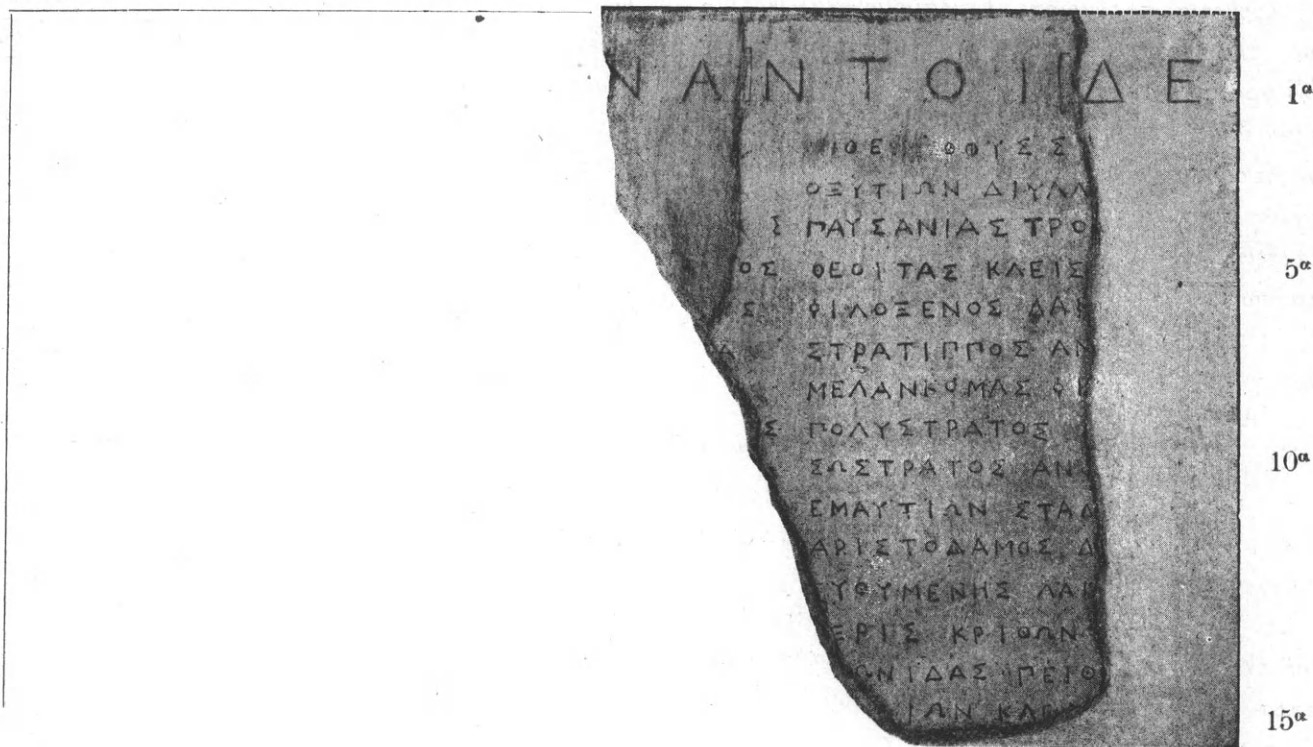 ΝΑΝΤΟΙΔΕ 1α
ΟΞΥΤΙΩΝ ΔΙΥΛΛ
Σ ΠΑΥΣΑΝΙΑΣ ΤΡΟ
ΟΣ ΘΕΟΙΤΑΣ ΚΛΕΙΣ 5α
Σ ΦΙΛΟΞΕΝΟΣ ΔΑ
Α ΣΤΡΑΤΙΠΠΟΣ ΑΝ
ΜΕΛΑΝΚΟΜΑΣ
Σ ΠΟΛΥΣΤΡΑΤΟΣ
ΣΩΣΤΡΑΤΟΣ ΑΝ 10α
ΕΜΑΥΤΙΩΝ ΣΤΑΔ
ΑΡΙΣΤΟΔΑΜΟΣ Δ
ΥΘΥΜΕΝΗΣ ΛΑ
ΞΡΙΣ ΚΡΙΘΩΝ
ΩΝΙΔΑΣ ΠΕΙΘ
ΙΩΝ ΚΛΕ 15α